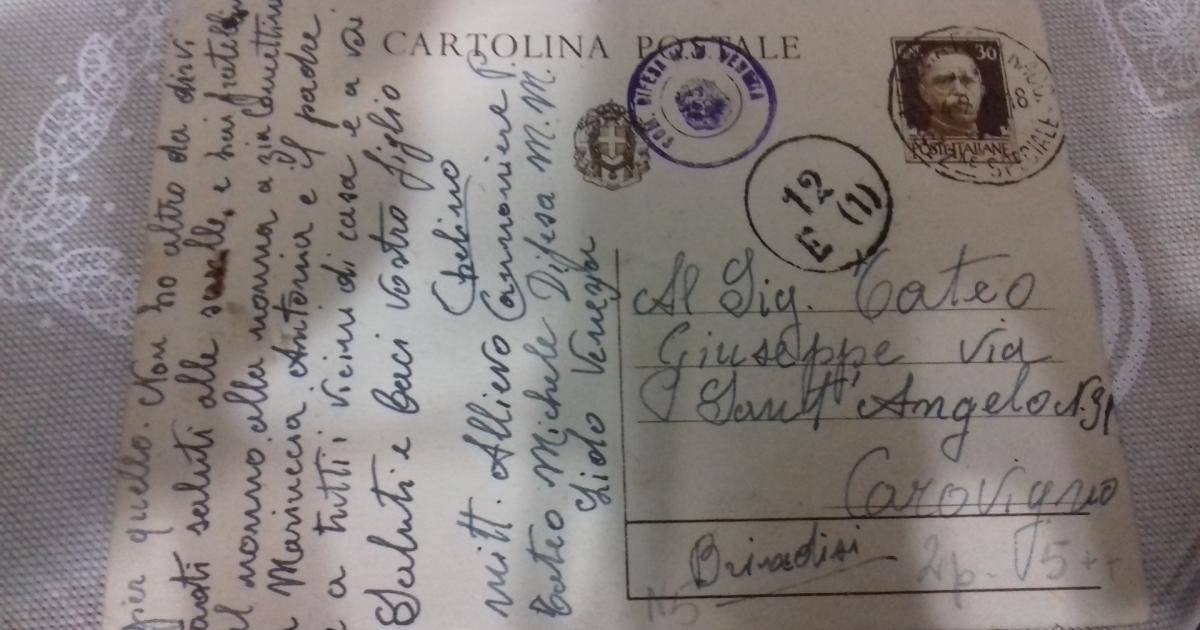 CARTOLINA POSTALE
30
POSTE ITALIANE
COM. DIFESA M.M. VENEZIA
E 12
(1)
Al Sig. Cateo
Giuseppe via
Sant'Angelo N. 31
Carovigno
Brindisi
2p. 5++
N5
per quello. Non ho altro da dirvi
saluti alle sorelle, e hai fratellini
al nonno alla nonna a zia
Mariuccia Antonia e il padre
e a tutti i vicini di casa e a voi
Saluti e baci vostro figlio
Chelino
mitt. Allievo Cannoniere P.
Cateo Michele Difesa M.M.
Lido Venezia